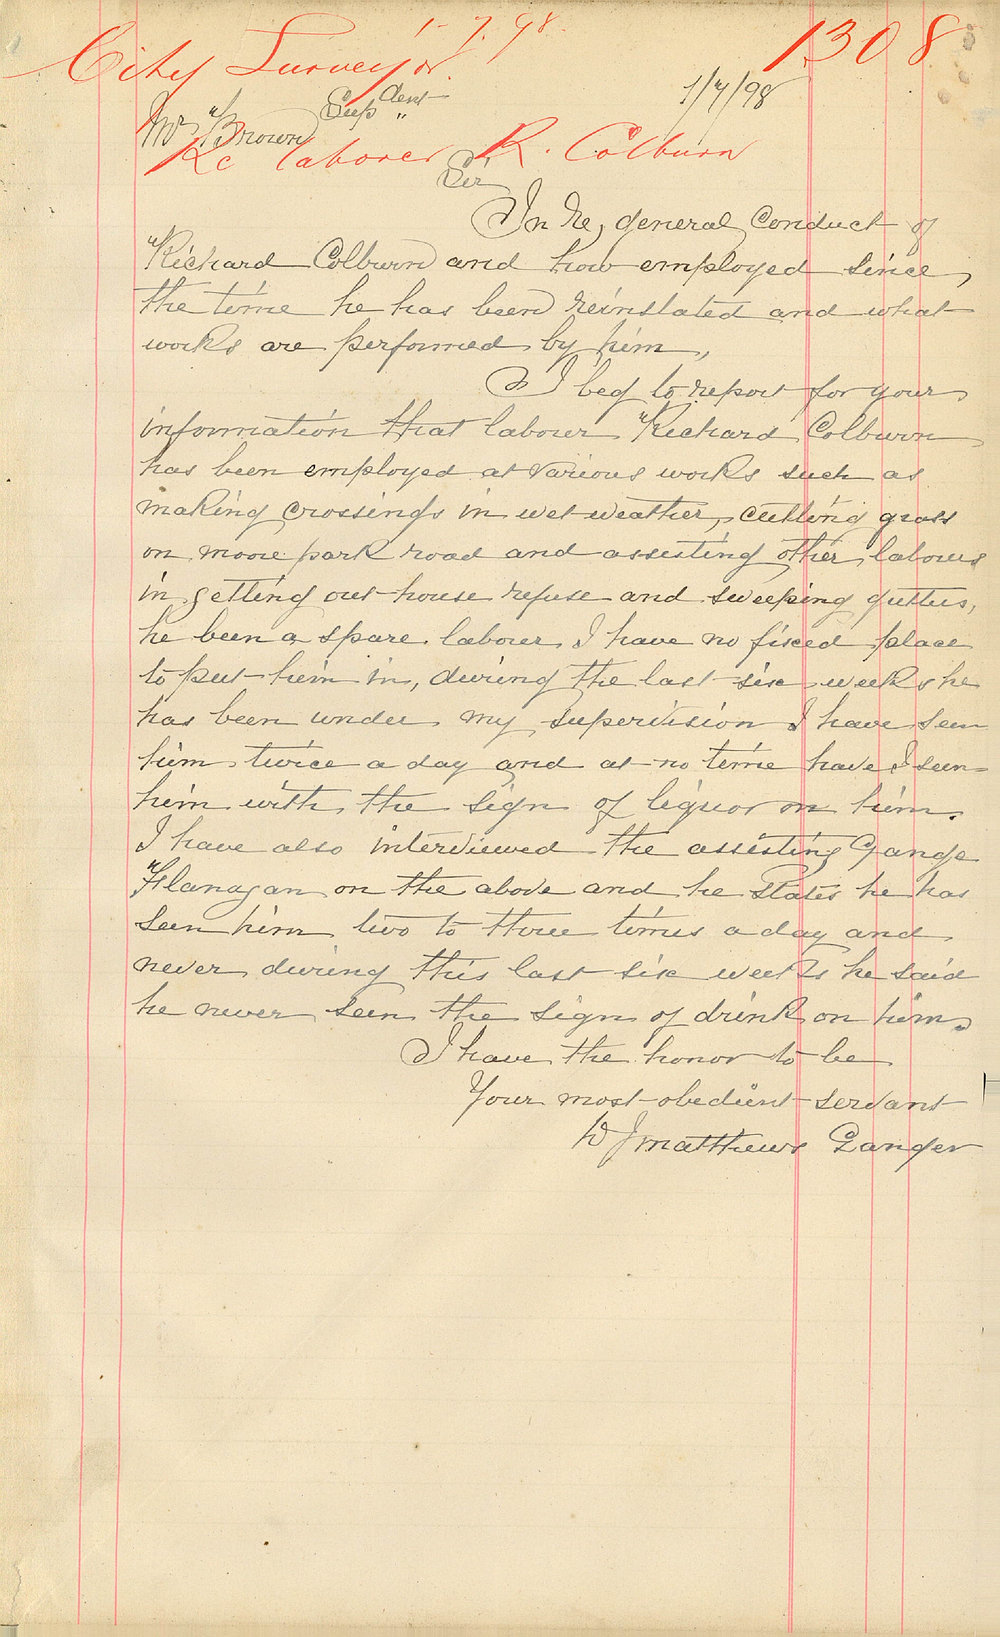 1-7.98.
1308
City Surveyor.
1/7/98
Mr Brown Supdent
Re laborer R. Colburn
Sir
In Re, general Conduct of
Richard Colburn and how employed since,
the time he has been reinstated and what
works are performed by him,
I beg to report for your
information that labourer Richard Colburn
has been employed at various works such as
making Crossings in wet weather, cutting grass
on moore park road and assisting other labours
in getting out house refuse and sweeping gutters,
he been a spare labourer I have no fixed place
to put him in, during the last six weeks he
has been under my supervision I have seen
him twice a day and at no time have I seen
him with the sign of liquor on him.
I have also interviewed the assisting Gange
Flanagan on the above and he states he has
seen him two to three times a day and
never during this last six weeks he said
he never seen the sign of drink on him.
I have the honor to be
Your most obedient servant
W J Matthews Ganger